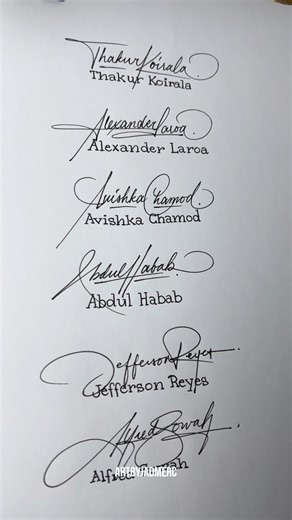 Thakur Koirala.
Thakur Koirala
Alexander Laroa.
Alexander Laroa
Avishka Chamod.
Avishka Chamod
Abdul Habab.
Abdul Habab
Jefferson Reyes.
Jefferson Reyes
Alfred Bowah.
Alfred
ARTBYJADMERC